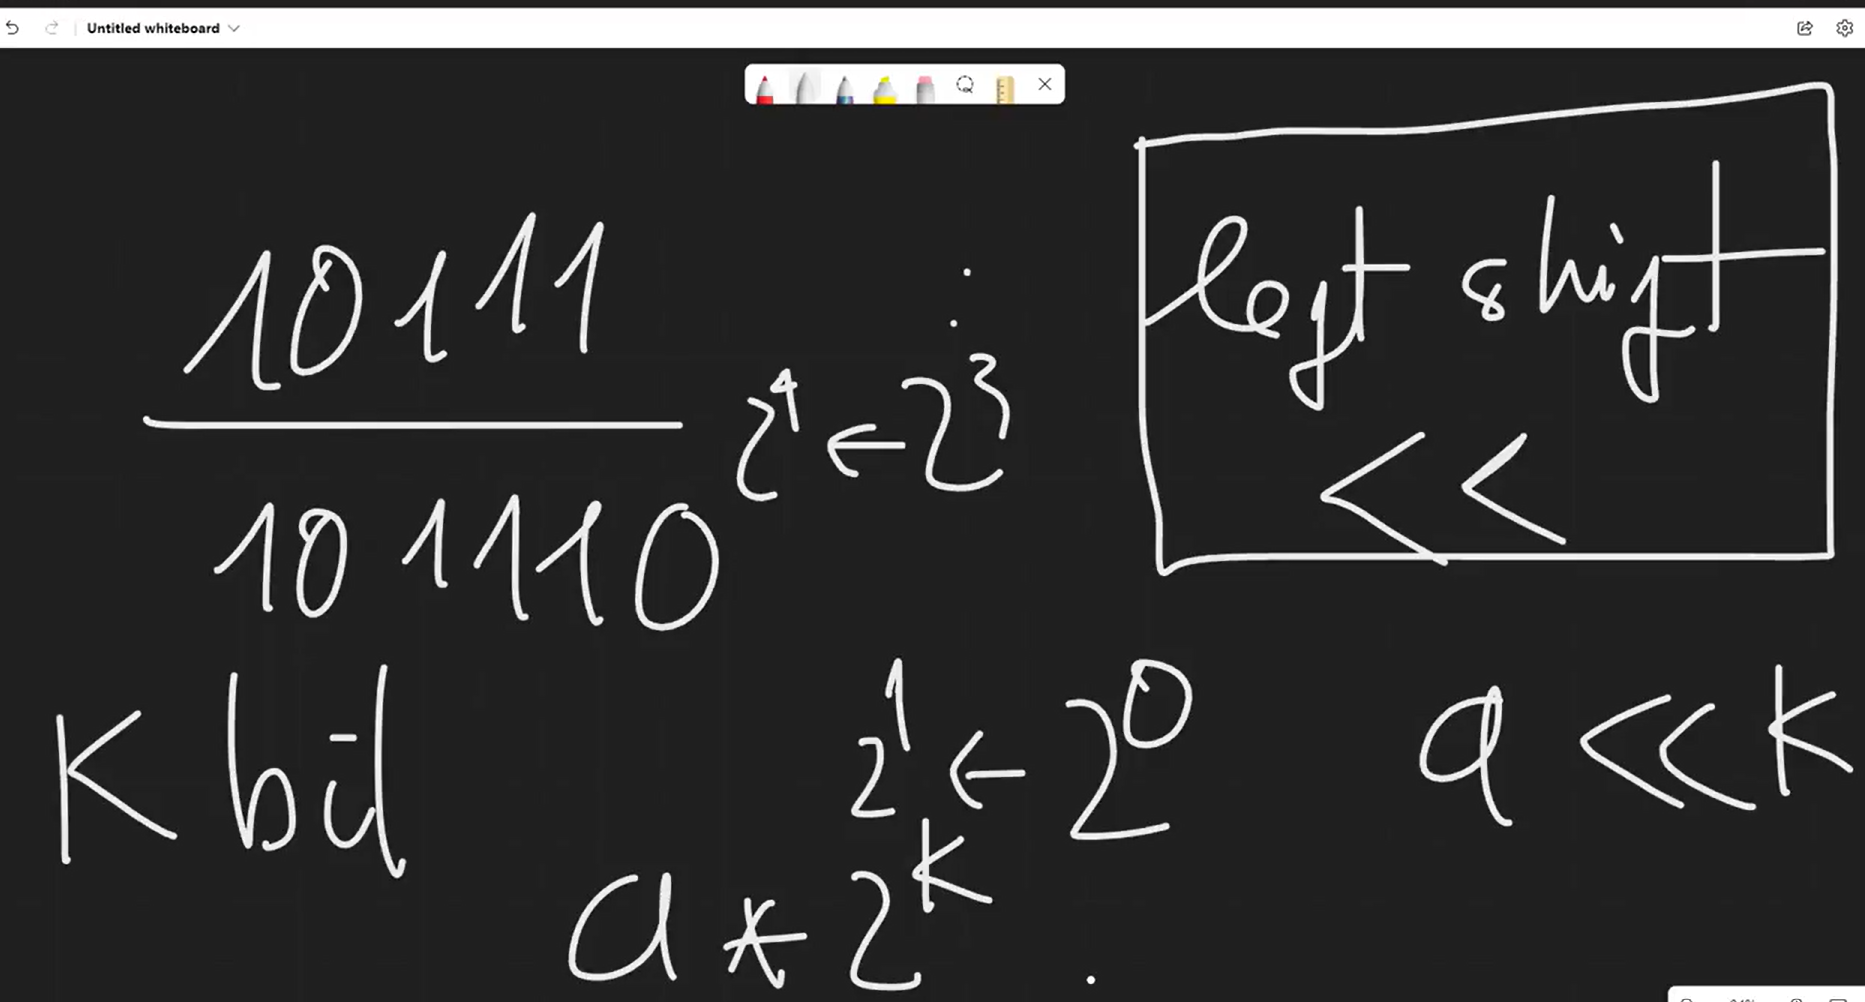 Untitled whiteboard
10111
101110
2^4 ← 2^3
left shift
<<
K bit
2^1 ← 2^0
a << K
a * 2^K